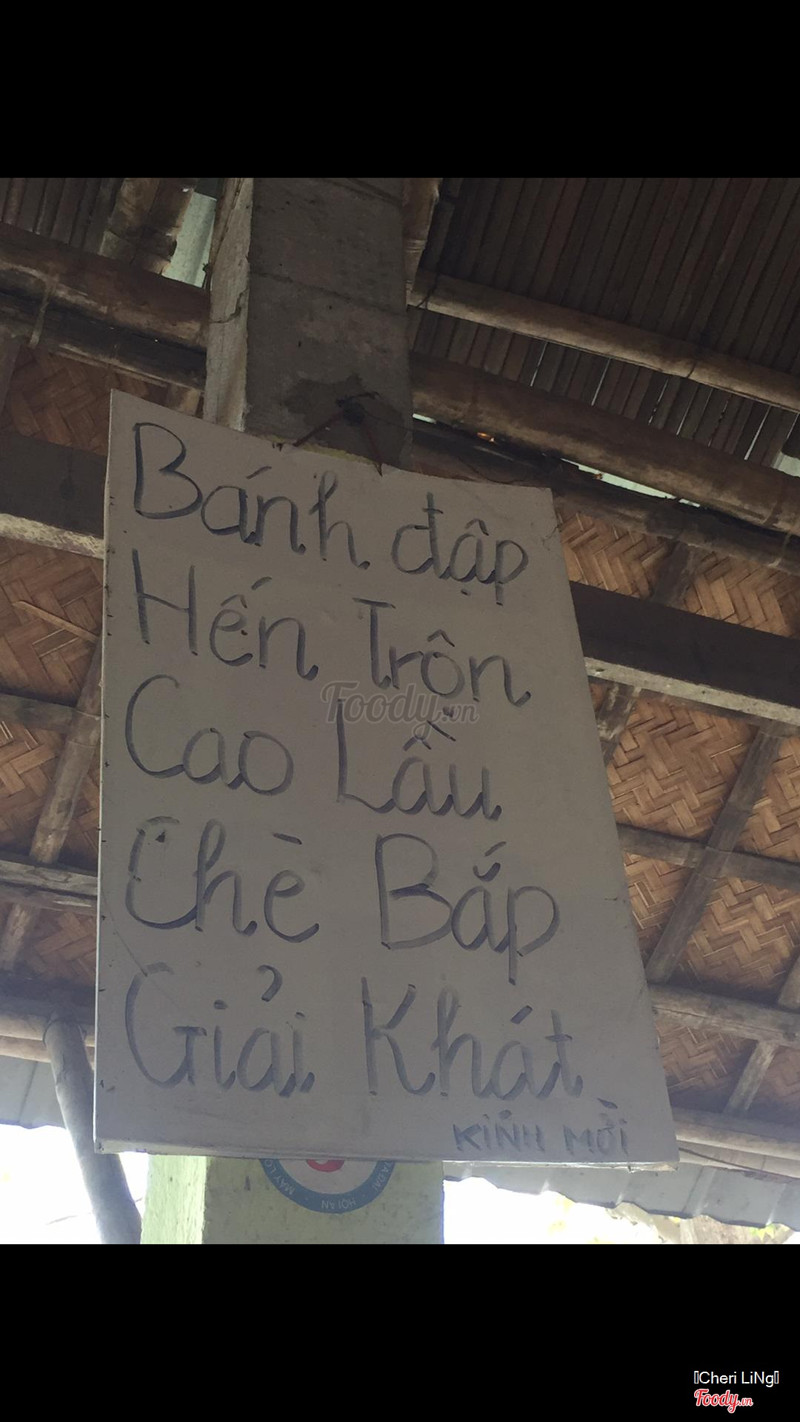 Bánh đập
Hến Trộn
Cao Lầu
Chè Bắp
Giải Khát
KÍNH MỜI
Foody.vn
HỘI AN
Cheri LiNg
Foody.vn